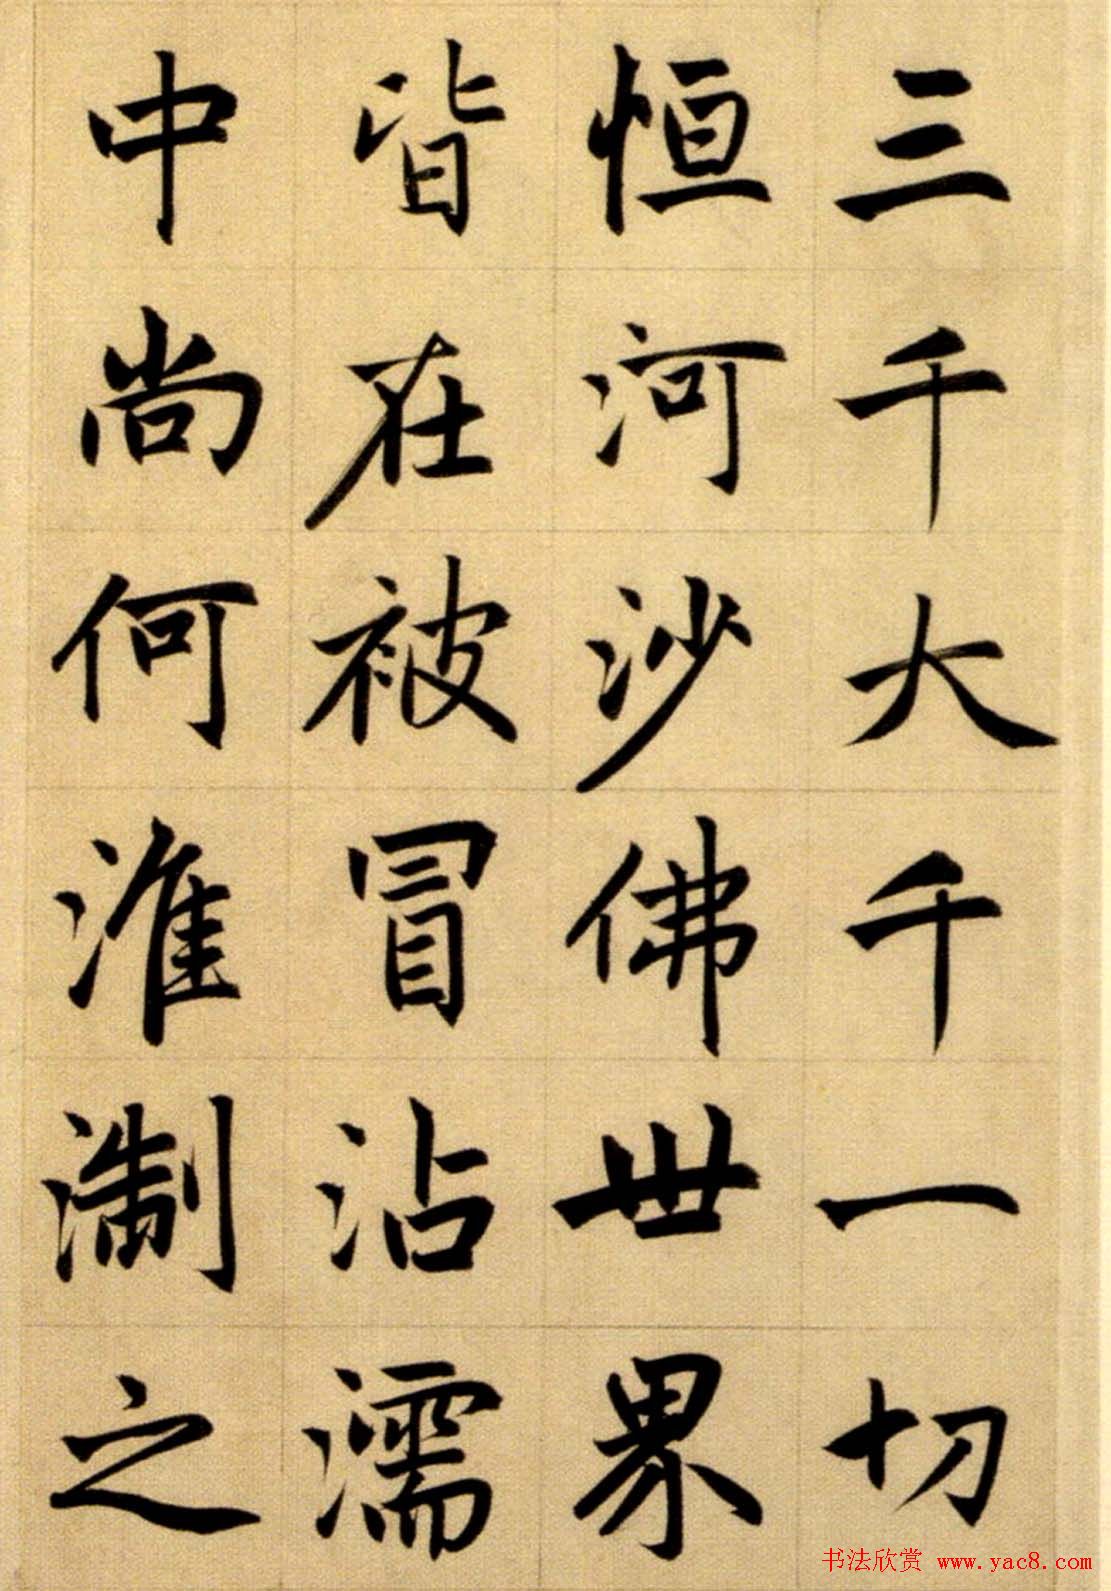 三千大千一切
恒河沙佛世界
皆在被冒沾濡
中尚何淮淛之
书法欣赏 www.yac8.com